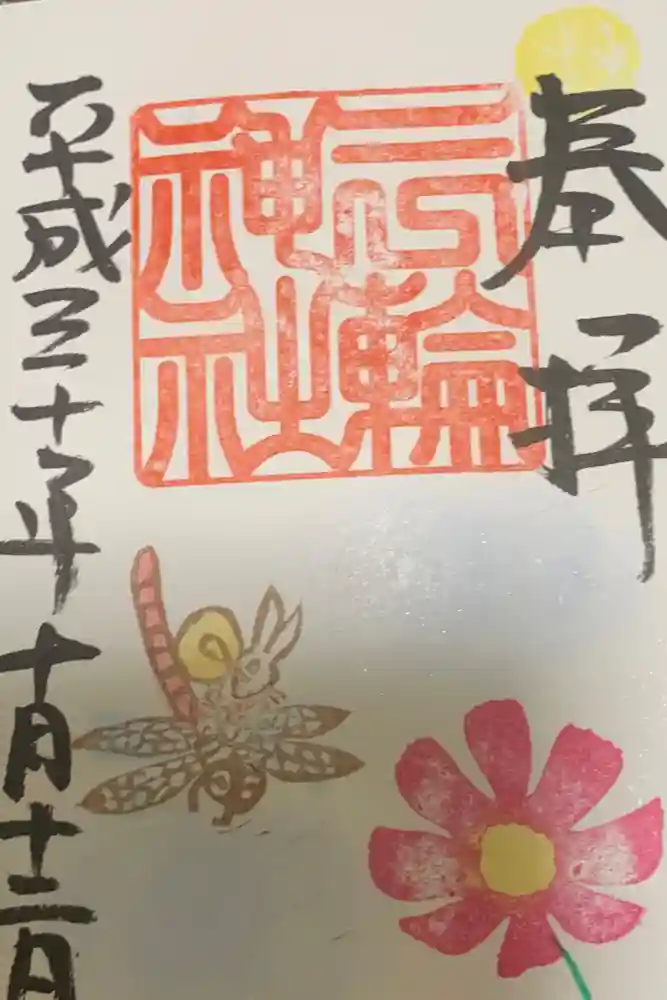 奉拝
三輪
神社
平成三十年十月十二日